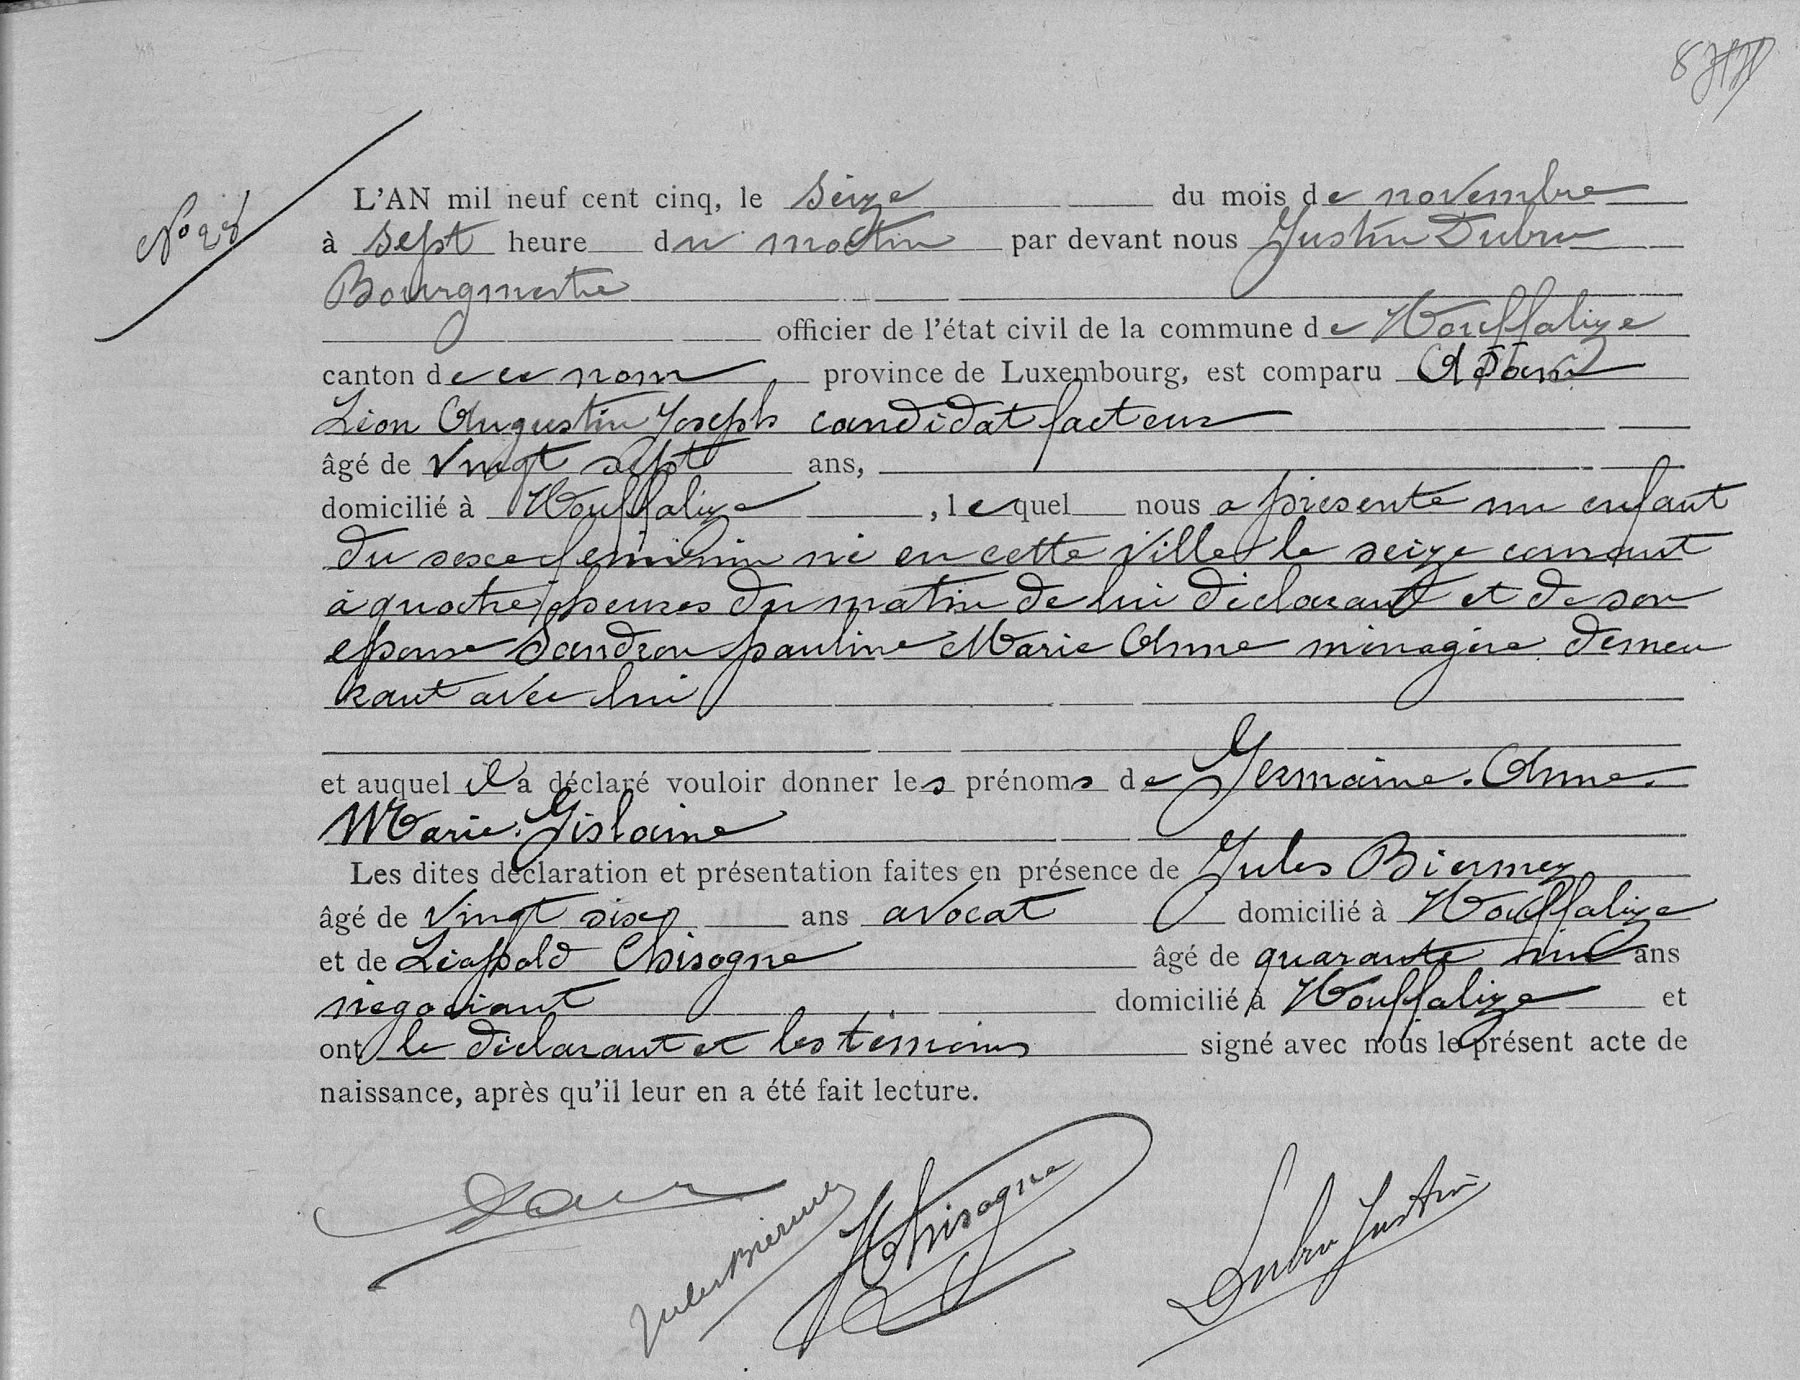 No 28
L'AN mil neuf cent cinq, le seize du mois de novembre
à sept heure du matin par devant nous Justin Dubru
Bourgmestre
officier de l'état civil de la commune de Houffalize
canton de ce nom province de Luxembourg, est comparu
Léon Augustin Joseph candidat facteur
âgé de vingt sept ans,
domicilié à Houffalize, lequel nous a présenté un enfant
du sexe féminin né en cette ville le seize courant
à quatre heures du matin de lui déclarant et de son
épouse Sandron pauline Marie Anne ménagère demeu
rant avec lui
et auquel il a déclaré vouloir donner les prénoms de Germaine. Anne.
Marie. Gislaine
Les dites déclaration et présentation faites en présence de Jules
âgé de vingt six ans avocat domicilié à Houffalize
et de Léopold Chisogne âgé de quarante ans
négociant domicilié à Houffalize et
ont le déclarant et les témoins signé avec nous le présent acte de
naissance, après qu'il leur en a été fait lecture.
Chisogne
Dubru Justin